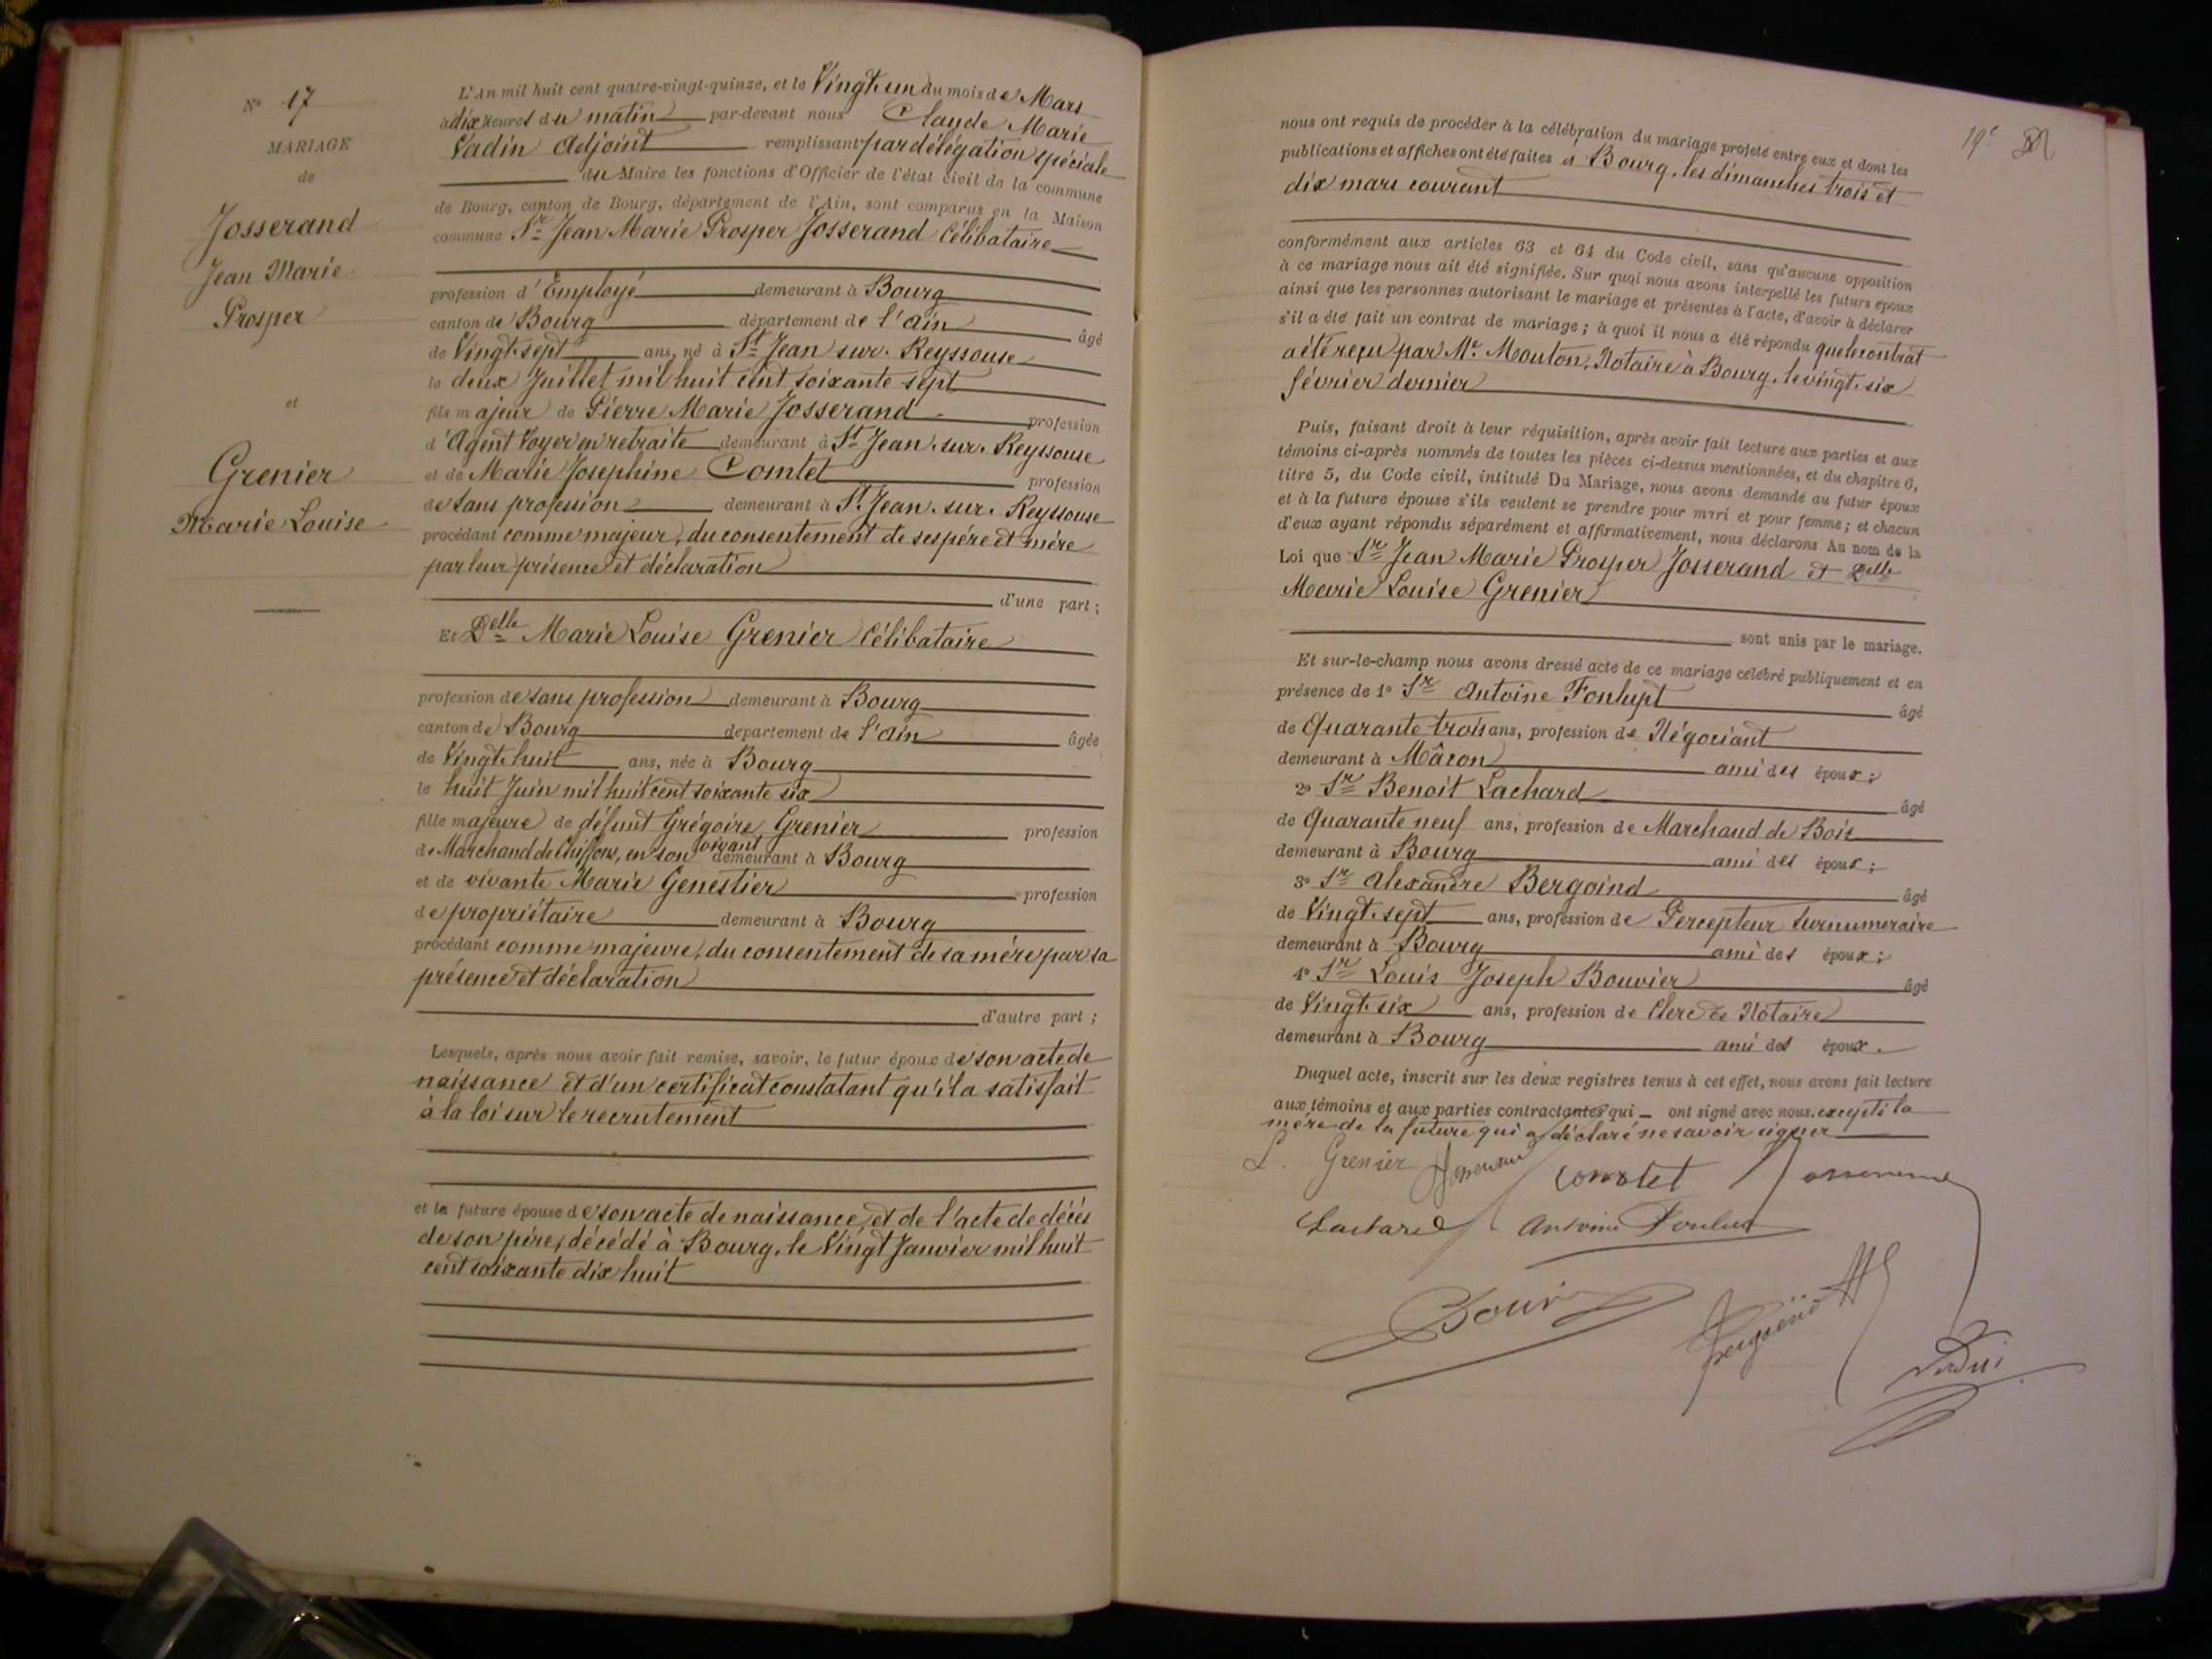 N° 17
MARIAGE
de
Josserand
Jean Marie
Prosper
et
Grenier
Marie Louise
L'An mil huit cent quatre-vingt-quinze, et le Vingt-un du mois de Mars
à dix heures du matin par-devant nous Claude Marie
Vadin Adjoint remplissant par délégation spéciale
du Maire les fonctions d'Officier de l'état civil de la commune
de Bourg, canton de Bourg, département de l'Ain, sont comparus en la Maison
commune Sr Jean Marie Prosper Josserand Célibataire
profession d'Employé demeurant à Bourg
canton de Bourg département de l'Ain âgé
de Vingt-sept ans, né à St Jean sur Reyssouse
le deux Juillet mil huit cent soixante sept
fils majeur de Pierre Marie Josserand profession
d'Agent Voyer en retraite demeurant à St Jean sur Reyssouse
et de Marie Josephine Comtet profession
de sans profession demeurant à St Jean sur Reyssouse
procédant comme majeur, du consentement de ses père et mère
par leur présence et déclaration
d'une part ;
Et Delle Marie Louise Grenier Célibataire
profession de sans profession demeurant à Bourg
canton de Bourg département de l'Ain âgée
de Vingt-huit ans, née à Bourg
le huit Juin mil huit cent soixante six
fille majeure de défunt Grégoire Grenier profession
de Marchand de Chiffons, en son vivant demeurant à Bourg
et de vivante Marie Genestier profession
de propriétaire demeurant à Bourg
procédant comme majeure, du consentement de sa mère par sa
présence et déclaration
d'autre part ;
Lesquels, après nous avoir fait remise, savoir, le futur époux de son acte de
naissance et d'un certificat constatant qu'il a satisfait
à la loi sur le recrutement
et la future épouse de son acte de naissance, et de l'acte de décès
de son père, décédé à Bourg, le Vingt Janvier mil huit
cent soixante dix huit
19e
nous ont requis de procéder à la célébration du mariage projeté entre eux et dont les
publications et affiches ont été faites à Bourg, les dimanches trois et
dix mars courant
conformément aux articles 63 et 64 du Code civil, sans qu'aucune opposition
à ce mariage nous ait été signifiée. Sur quoi nous avons interpellé les futurs époux
ainsi que les personnes autorisant le mariage et présentes à l'acte, d'avoir à déclarer
s'il a été fait un contrat de mariage ; à quoi il nous a été répondu que le contrat
a été reçu par Me Mouton, Notaire à Bourg, le vingt-six
février dernier
Puis, faisant droit à leur réquisition, après avoir fait lecture aux parties et aux
témoins ci-après nommés de toutes les pièces ci-dessus mentionnées, et du chapitre 6,
titre 5, du Code civil, intitulé Du Mariage, nous avons demandé au futur époux
et à la future épouse s'ils veulent se prendre pour mari et pour femme ; et chacun
d'eux ayant répondu séparément et affirmativement, nous déclarons Au nom de la
Loi que Sr Jean Marie Prosper Josserand et Delle
Marie Louise Grenier
sont unis par le mariage.
Et sur-le-champ nous avons dressé acte de ce mariage célébré publiquement et en
présence de 1° Sr Antoine Fonlupt âgé
de Quarante trois ans, profession de Négociant
demeurant à Mâcon ami des époux ;
2° Sr Benoit Lachard âgé
de Quarante neuf ans, profession de Marchand de Bois
demeurant à Bourg ami des époux ;
3° Sr Alexandre Bergoind âgé
de Vingt-sept ans, profession de Percepteur Surnumeraire
demeurant à Bourg ami des époux ;
4° Sr Louis Joseph Bouvier âgé
de Vingt-six ans, profession de Clerc de Notaire
demeurant à Bourg ami des époux.
Duquel acte, inscrit sur les deux registres tenus à cet effet, nous avons fait lecture
aux témoins et aux parties contractantes qui ont signé avec nous, excepté la
mère de la future qui a déclaré ne savoir signer
L. Grenier Josserand Comtet Josserand
Lachard Antoine Fonlupt
Bouvier